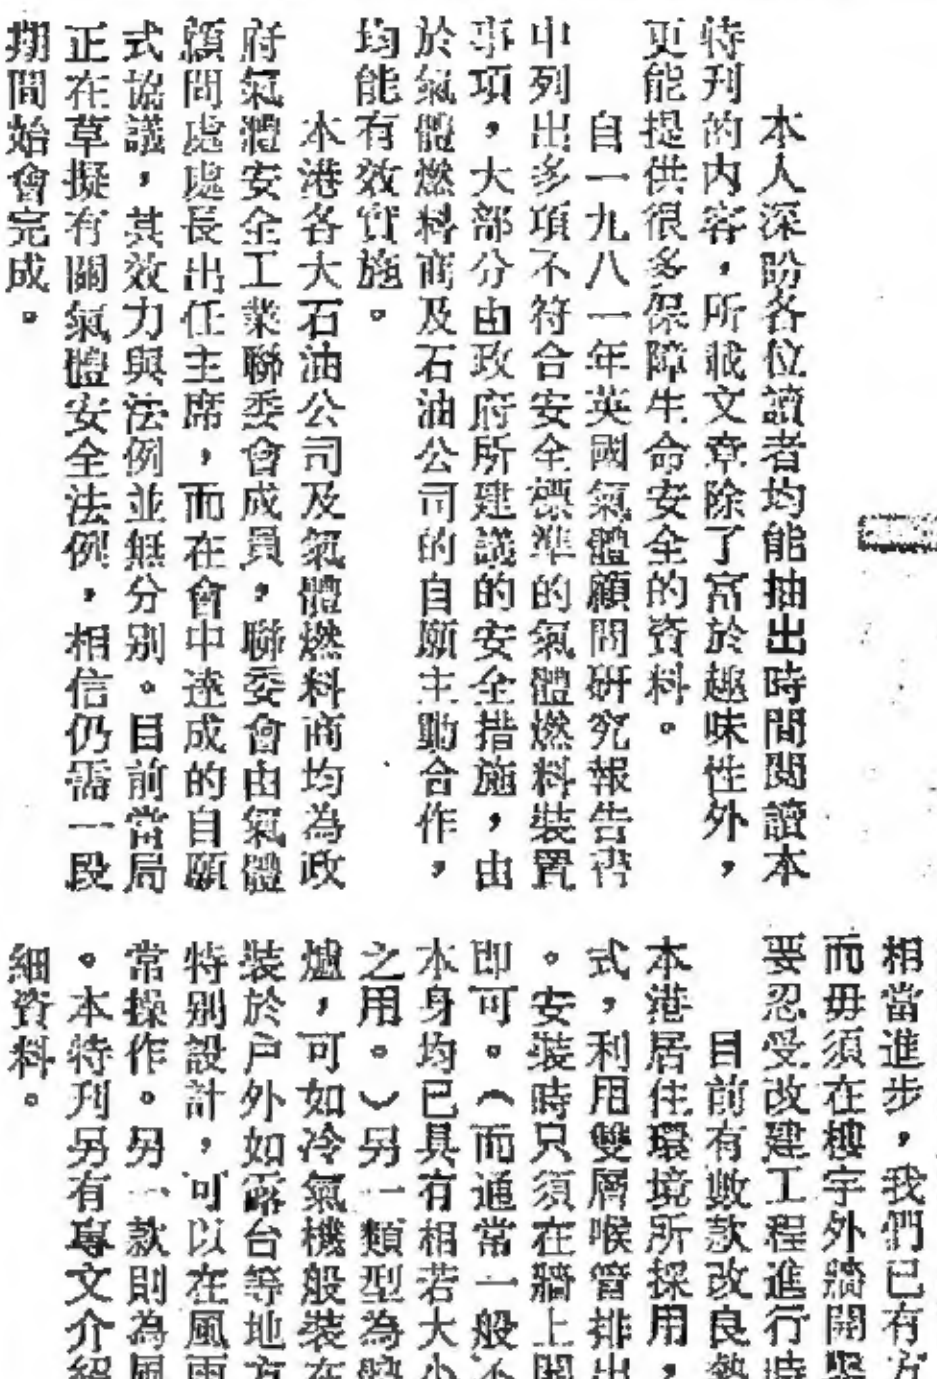 本人深盼各位讀者均能抽出時間閱讀本
特刊的內容，所載文章除了富於趣味性外，
更能提供很多保障生命安全的資料。
自一九八一年英國氣體顧問研究報告書
中列出多項不符合安全標準的氣體燃料裝置
事項，大部分由政府所建議的安全措施，由
於氣體燃料商及石油公司的自願主動合作，
均能有效實施。
本港各大石油公司及氣體燃料商均為政
府氣體安全工業聯委會成員，聯委會由氣體
顧問處處長出任主席，而在會中達成的自願
式協議，其效力與法例並無分別。目前當局
正在草擬有關氣體安全法例，相信仍需一段
期間始會完成。
相當進步，我們已有方
而毋須在樓宇外牆開鑿
要忍受改建工程進行時
目前有數款改良熱
本港居住環境所採用，
式，利用雙層喉管排出
。安裝時只須在牆上開
即可。（而通常一般
本身均已具有相若大小
之用。）另一類型為
爐，可如冷氣機般裝在
裝於戶外如露台等地方
特別設計，可以在風雨
常操作。另一款則為風
。本特刊另有專文介紹
細資料。